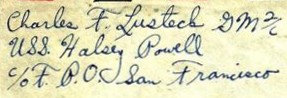 Charles F. Lusteck GM 2/c
U.S.S. Halsey Powell
c/o F. P. O. San Francisco